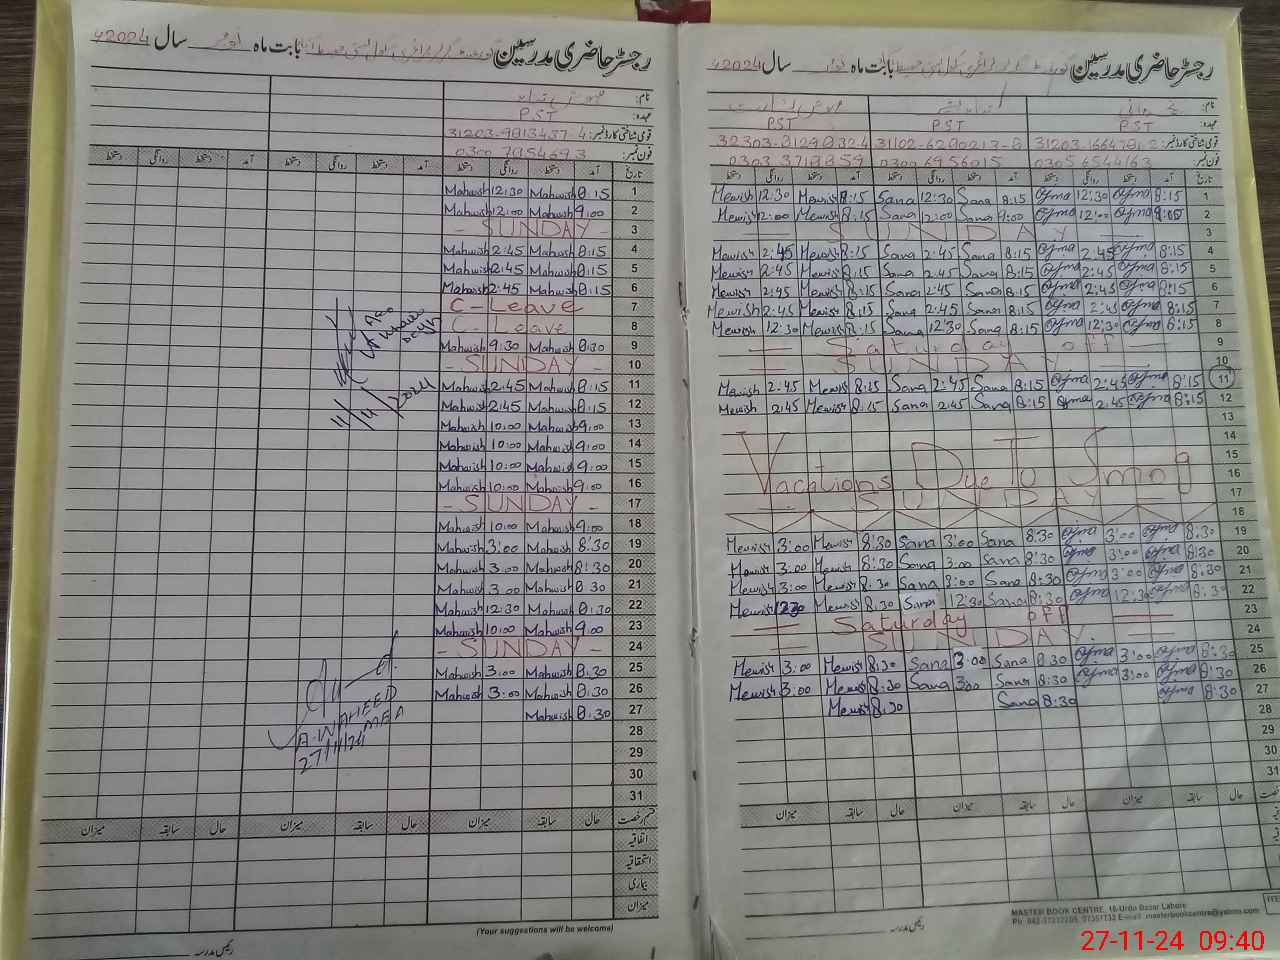 رجسٹر حاضری مدرسین بابت ماہ نومبر سال 2024ء
نام:
عہدہ: PST
قومی شناختی کارڈ نمبر: 31203-9813437-4
فون نمبر: 0300 7954693
تاریخ آمد دستخط روانگی دستخط آمد دستخط روانگی دستخط آمد دستخط روانگی دستخط
1 8:15 Mahwish 12:30 Mahwish
2 9:00 Mahwish 12:00 Mahwish
3 - SUNDAY -
4 8:15 Mahwish 2:45 Mahwish
5 8:15 Mahwish 2:45 Mahwish
6 8:15 Mahwish 2:45 Mahwish
7 C-Leave
8 C-Leave
9 8:30 Mahwish 9:30 Mahwish
10 - SUNDAY -
11 8:15 Mahwish 2:45 Mahwish
12 8:15 Mahwish 2:45 Mahwish
13 9:00 Mahwish 10:00 Mahwish
14 9:00 Mahwish 10:00 Mahwish
15 9:00 Mahwish 10:00 Mahwish
16 9:00 Mahwish 10:00 Mahwish
17 - SUNDAY -
18 9:00 Mahwish 10:00 Mahwish
19 8:30 Mahwish 3:00 Mahwish
20 8:30 Mahwish 3:00 Mahwish
21 8:30 Mahwish 3:00 Mahwish
22 8:30 Mahwish 12:30 Mahwish
23 9:00 Mahwish 10:00 Mahwish
24 - SUNDAY -
25 8:30 Mahwish 3:00 Mahwish
26 8:30 Mahwish 3:00 Mahwish
27 8:30 Mahwish
28
29
30
31
A.WAHEED
MEA
27/11/24
قسم رخصت حال سابقہ میزان حال سابقہ میزان حال سابقہ میزان
اتفاقیہ
استحقاقیہ
بیماری
میزان
(Your suggestions will be welcome)
رئیس مدرسہ
رجسٹر حاضری مدرسین بابت ماہ نومبر سال 2024ء
نام:
عہدہ: PST PST PST
قومی شناختی کارڈ نمبر: 31102-6290213-8
فون نمبر: 0305 6544163 0300 6956015 0303 3718859
تاریخ آمد دستخط روانگی دستخط آمد دستخط روانگی دستخط آمد دستخط روانگی دستخط
1 8:15 Ajma 12:30 Ajma 8:15 Sana 12:30 Sana 8:15 Mewish 12:30 Mewish
2 Ajma 12:00 Ajma 9:00 Sana 12:00 Sana 8:15 Mewish 12:00 Mewish
3 SUNDAY
4 8:15 Ajma 2:45 Ajma 8:15 Sana 2:45 Sana 8:15 Mewish 2:45 Mewish
5 8:15 Ajma 2:45 Ajma 8:15 Sana 2:45 Sana 8:15 Mewish 2:45 Mewish
6 8:15 Ajma 2:45 Ajma 8:15 Sana 2:45 Sana 8:15 Mewish 2:45 Mewish
7 8:15 Ajma 2:45 Ajma 8:15 Sana 2:45 Sana 8:15 Mewish 2:45 Mewish
8 8:15 Ajma 12:30 Ajma 8:15 Sana 12:30 Sana 8:15 Mewish 12:30 Mewish
9 Saturday off
10 SUNDAY
11 8:15 Ajma 2:45 Ajma 8:15 Sana 2:45 Sana 8:15 Mewish 2:45 Mewish
12 8:15 Ajma 2:45 Ajma 8:15 Sana 2:45 Sana 8:15 Mewish 2:45 Mewish
13
14
15
16 Vacations Due To Smog
17 SUNDAY
18
19 8:30 Ajma 3:00 Ajma 8:30 Sana 3:00 Sana 8:30 Mewish 3:00 Mewish
20 8:30 Ajma 3:00 Ajma 8:30 Sana 3:00 Sana 8:30 Mewish 3:00 Mewish
21 8:30 Ajma 3:00 Ajma 8:30 Sana 8:00 Sana 8:30 Mewish 3:00 Mewish
22 8:30 Ajma 12:30 Ajma 8:30 Sana 12:30 Sana 8:30 Mewish 12:30 Mewish
23 Saturday off
24 SUNDAY
25 8:30 Ajma 3:00 Ajma 8:30 Sana 3:00 Sana 8:30 Mewish 3:00 Mewish
26 8:30 Ajma 3:00 Ajma 8:30 Sana 3:00 Sana 8:30 Mewish 3:00 Mewish
27 8:30 Ajma 8:30 Sana 8:30 Mewish
28
29
30
31
حال سابقہ میزان حال سابقہ میزان حال سابقہ میزان
MASTER BOOK CENTRE, 16-Urdu Bazar Lahore
رئیس مدرسہ
27-11-24 09:40